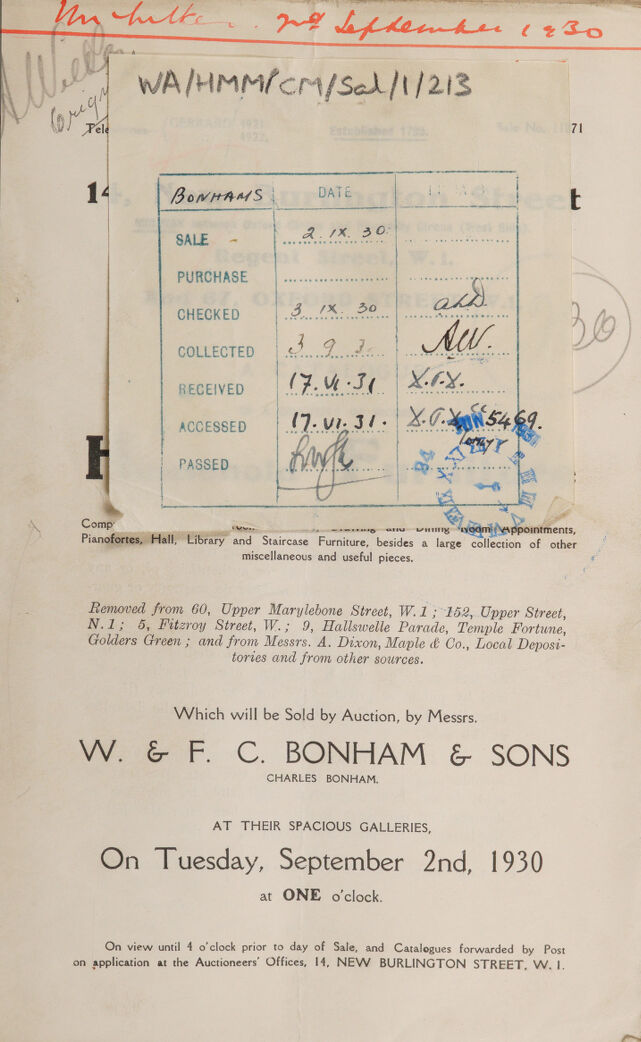 2nd September 1930
WA/HMM/CM/Sal/1/213
Established 1793.
71
14
t
BONHAMS DATE
SALE 2. IX. 30.
PURCHASE
CHECKED 3 IX 30
COLLECTED 3 9 30 AW.
RECEIVED 17.VI.31 X.O.X.
ACCESSED 17.VI.31. X.O.X.
PASSED
H
30
Comp
Drawing and Dining Room Appointments,
Pianofortes, Hall, Library and Staircase Furniture, besides a large collection of other
miscellaneous and useful pieces.
Removed from 60, Upper Marylebone Street, W.1 ; 152, Upper Street,
N.1 ; 5, Fitzroy Street, W. ; 9, Hallswelle Parade, Temple Fortune,
Golders Green ; and from Messrs. A. Dixon, Maple & Co., Local Deposi-
tories and from other sources.
Which will be Sold by Auction, by Messrs.
W. & F. C. BONHAM & SONS
CHARLES BONHAM.
AT THEIR SPACIOUS GALLERIES,
On Tuesday, September 2nd, 1930
at ONE o'clock.
On view until 4 o'clock prior to day of Sale, and Catalogues forwarded by Post
on application at the Auctioneers' Offices, 14, NEW BURLINGTON STREET, W. 1.